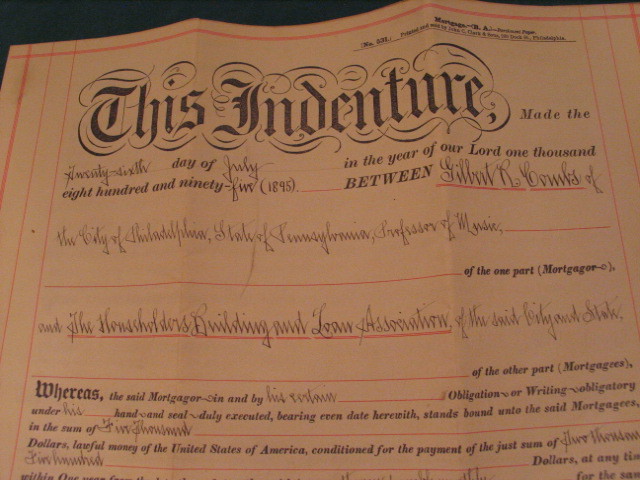 Mortgage.—(B. A.)—Bondsmen Paper.
(No. 331.) Printed and sold by John C. Clark & Sons, 230 Dock St., Philadelphia.
This Indenture, Made the
Twenty-sixth day of July in the year of our Lord one thousand
eight hundred and ninety-five (1895) BETWEEN Gilbert R. Combs of
the City of Philadelphia, State of Pennsylvania, Professor of Music,
of the one part (Mortgagor),
and The Householders Building and Loan Association, of the said City and State.
of the other part (Mortgagees),
Whereas, the said Mortgagor in and by his certain Obligation or Writing obligatory
under his hand and seal duly executed, bearing even date herewith, stands bound unto the said Mortgagees,
in the sum of Five Thousand
Dollars, lawful money of the United States of America, conditioned for the payment of the just sum of Two thousan
Five hundred Dollars, at any tim
within One year from the for the sam